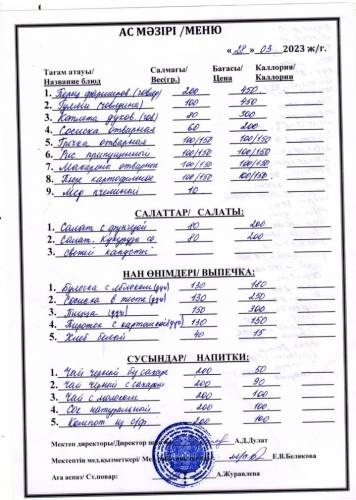 АС МӘЗІРІ /МЕНЮ
« 28 » 03 2023 ж/г.
Тағам атауы/ Салмағы/ Бағасы/ Каллория/
Название блюд Вес(гр.) Цена Каллории
1. Перец фарширов. (говяд) 200 450
2. Гуляш (говядина) 100 450
3. Котлета духов. 80 300
4. Сосиска отварная 60 200
5. Гречка отварная 100/150 100/150
6. Рис припущенный 100/150 100/150
7. Макароны отварные 100/150 100/150
8. Пюре картофельное 100/150 100/150
9. Мед пчелиный 10
САЛАТТАР/ САЛАТЫ:
1. Салат с 80 200
2. Салат. Кукуруза со 80 200
3. свежей капусты
НАН ӨНІМДЕРІ/ ВЫПЕЧКА:
1. Булочка с яблоком 130 180
2. Сосиска в тесте 130 250
3. Пицца 150 300
4. Пирожок с картошкой 130 150
5. Хлеб белый 40 15
СУСЫНДАР/ НАПИТКИ:
1. Чай черный без сахара 200 50
2. Чай черный с сахаром 200 90
3. Чай с молоком 200 100
4. Сок натуральный 200 100
5. Компот из с/ф 200 100
Мектеп директоры/Директор А.Д.Дулат
Мектептің мед.қызметкері/ Е.В.Белякова
Аға аспаз/ Ст.повар: А.Журавлева